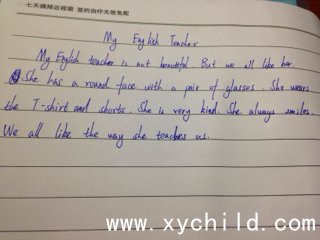 七天摘掉近视镜 签约治疗无效免配
My English Teacher
My English teacher is not beautiful But we all like her.
She has a round face with a pair of glasses. She wears
the T-shirt and shorts. She is very kind. She always smiles.
We all like the way she teaches us.
www.xychild.com